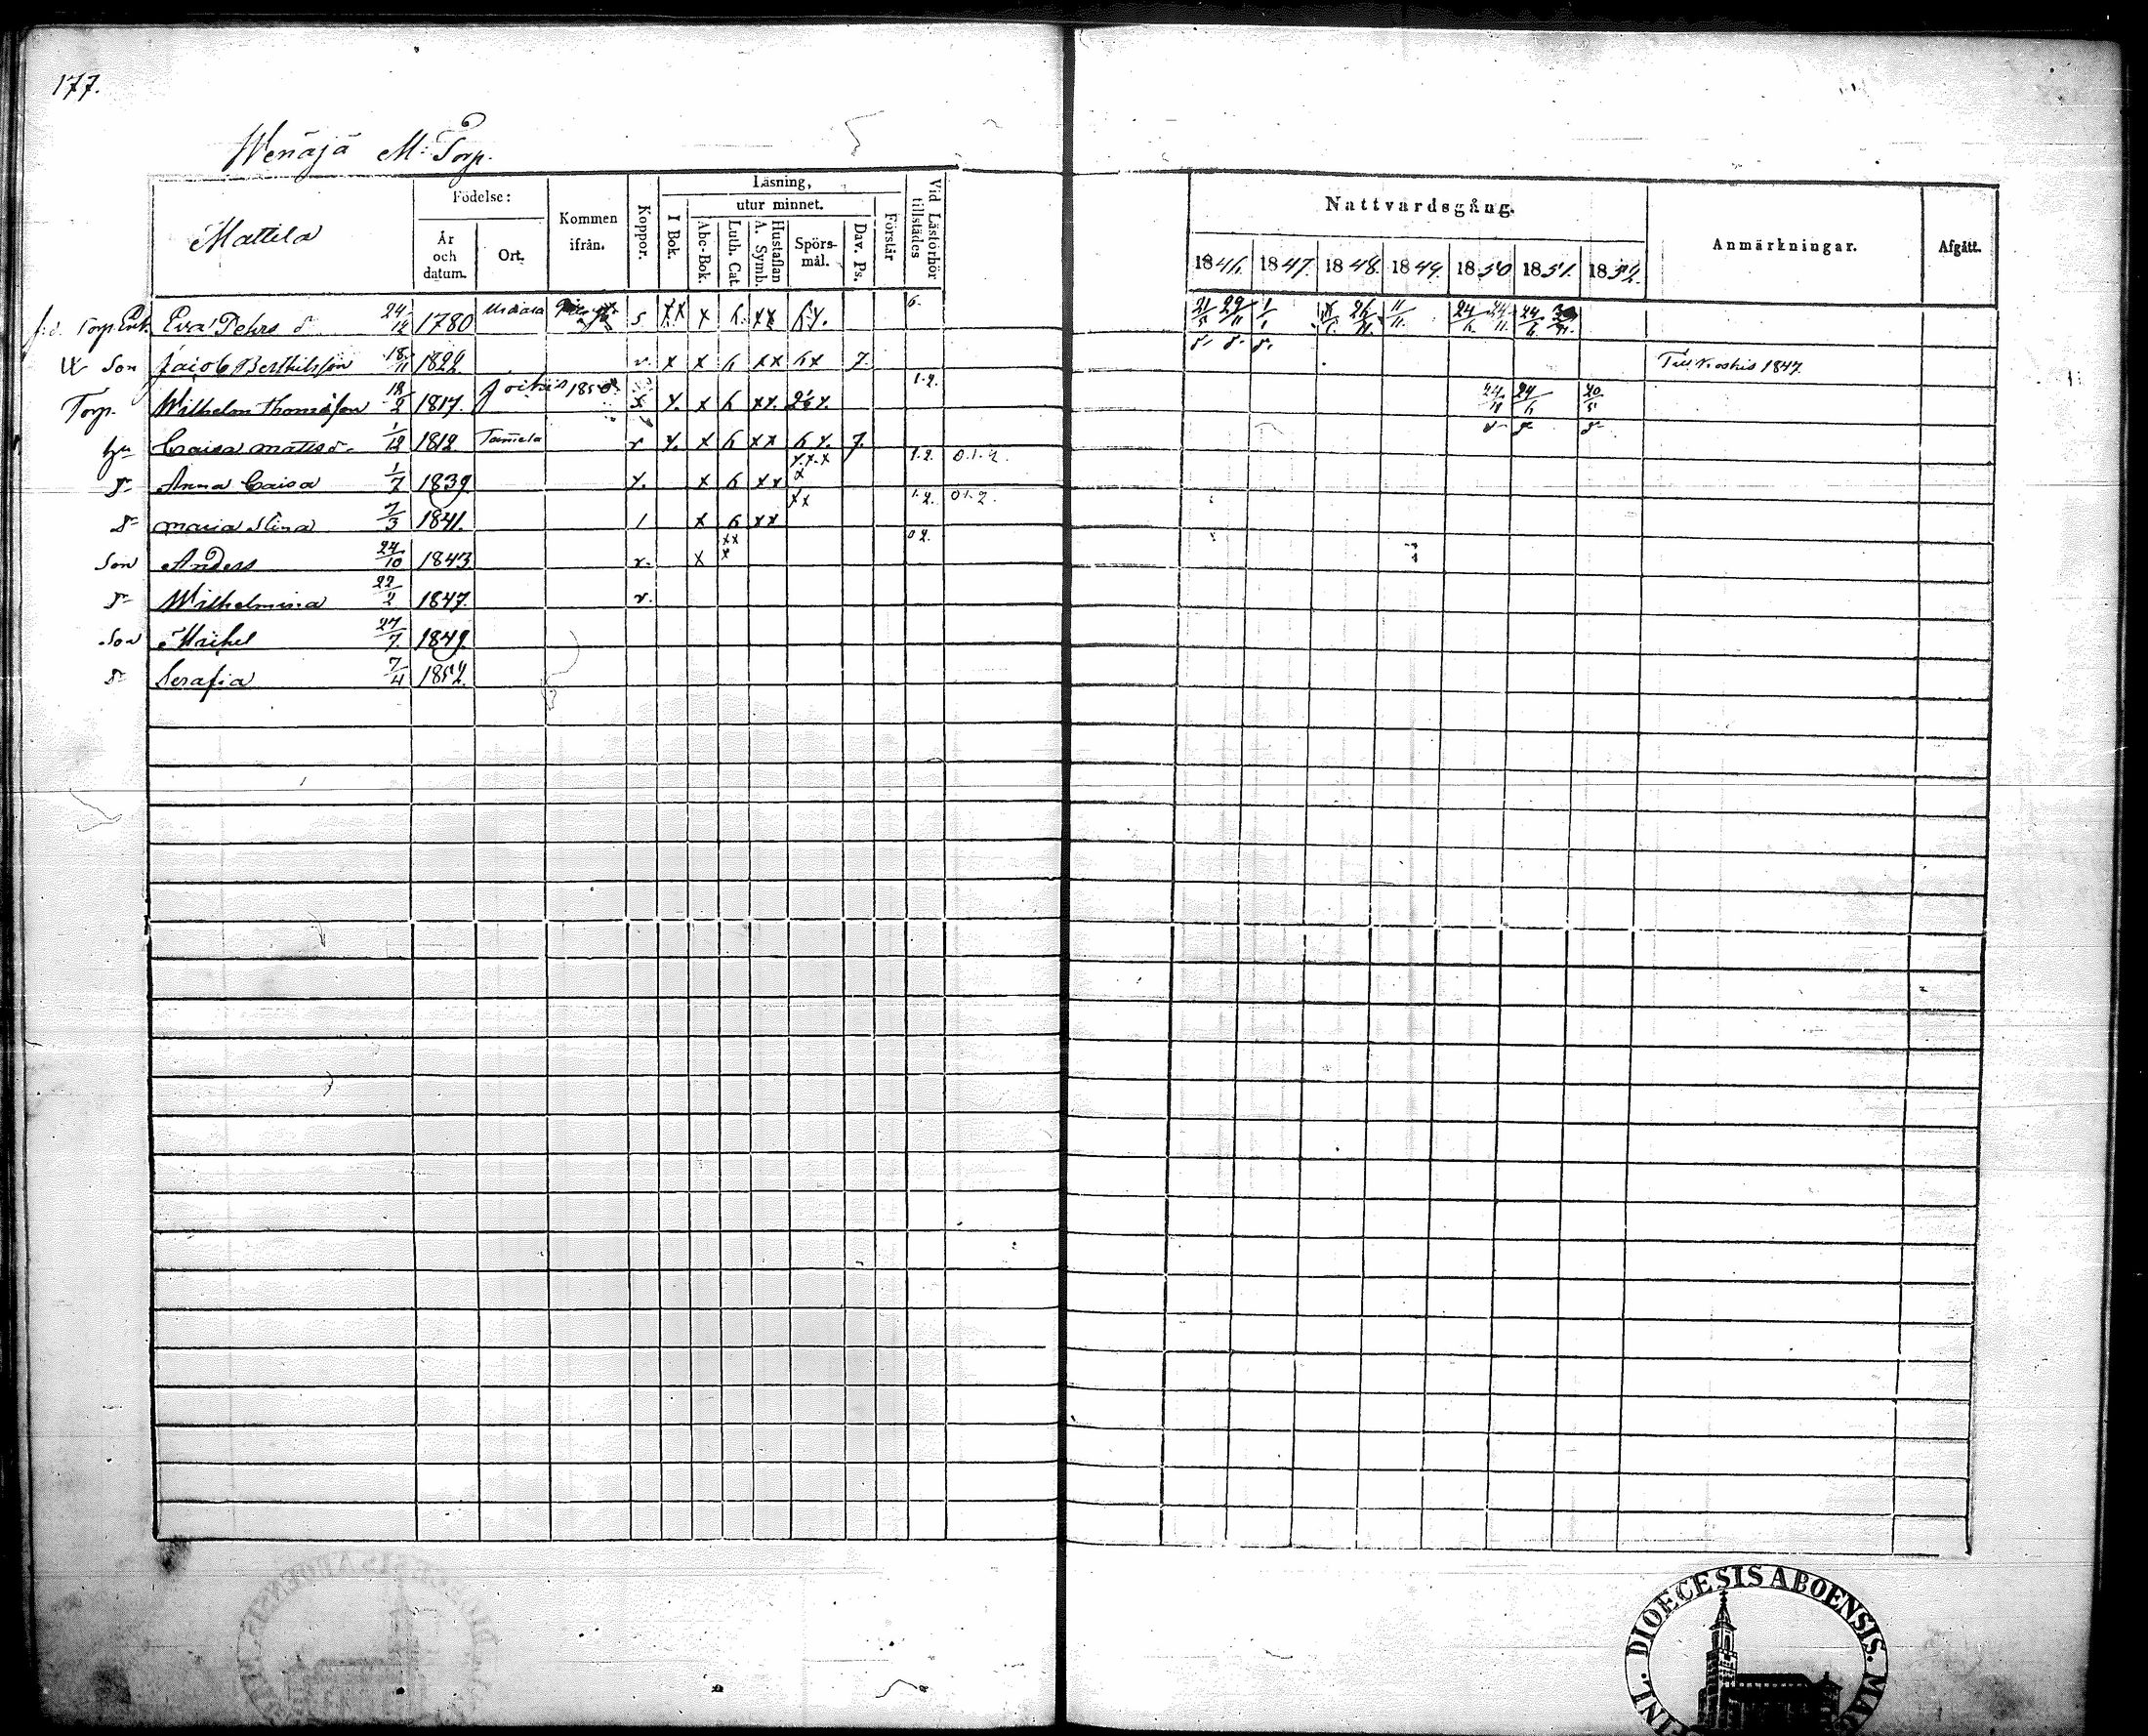 177.
Wenäjä M: Torp.
Mattila
Födelse:
År och datum.
Ort.
Kommen ifrån.
Koppor.
Läsning,
I Bok.
utur minnet.
Abc-Bok.
Luth. Cat.
Hustaflan A. Symb.
Spörsmål.
Dav. Ps.
Förstår
Vid Läsförhör tillstädes
Nattvardsgång.
1846. 1847. 1848. 1849. 1850 1851. 1852.
Anmärkningar.
Afgått.
f.d. Torp. Enk. Eva Pehrs d. 24/12 1780 s xx x h. xx 6. 21/5 29/11 1/1 26/11 11/11. 24/6. 24/11. 24/6
Son Jacob Berthilsson 18/11 1822 v. x x h xx hx 7. 1847
Torp. Wilhelm Thomasson 18/2 1817. Jockis 1850 x x. x h xx. 1.2. 24/11 24/6 20/5
hu Caisa Mattsd. 1/12 1812 Tammela v x. x h xx h x. 7.
dr Anna Caisa 1/7 1839. x. x h xx x.x.x x 1.2. 0.1.2.
dr Maria Stina 7/3 1841. 1 x h xx xx 1.2. 0 1.2.
Son Anders 24/10 1843 v. x xx x 02.
dr Wilhelmina 22/2 1847. v.
Son Michel 27/7. 1849.
dr Serafia 7/4 1852.
DIOECESIS ABOENSIS.